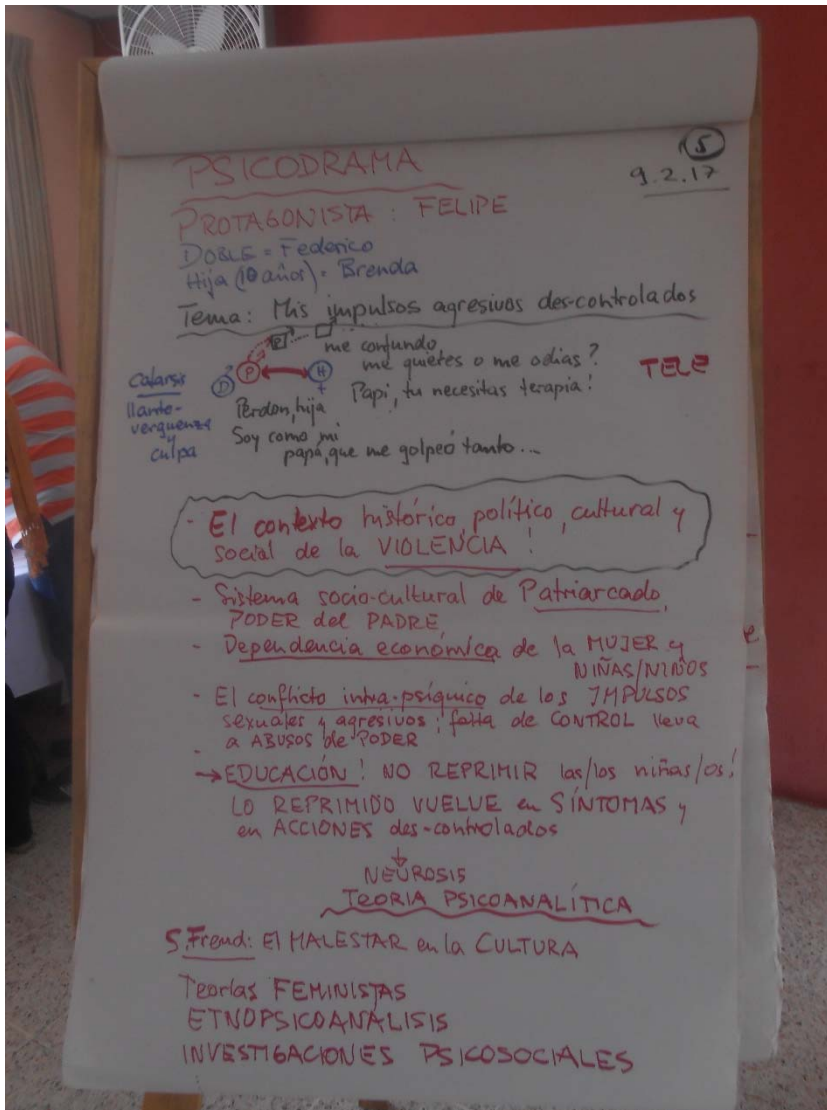 5
9.2.17
PSICODRAMA
PROTAGONISTA : FELIPE
DOBLE = Federico
Hija (10 años) = Brenda
Tema: Mis impulsos agresivos des-controlados
me confundo
me quieres o me odias?
TELE
D P H
Papi, tu necesitas terapia!
Catarsis
llanto-
verguenza
y
culpa
Perdon, hija
Soy como mi
papá, que me golpeó tanto...
- El contexto histórico, político, cultural y
social de la VIOLENCIA !
- Sistema socio-cultural de Patriarcado,
PODER del PADRE
- Dependencia económica de la MUJER y
NIÑAS/NIÑOS
- El conflicto intra-psíquico de los IMPULSOS
sexuales y agresivos; falta de CONTROL lleva
a ABUSOS de PODER
-
→ EDUCACIÓN ! NO REPRIMIR las/los niñas/os!
LO REPRIMIDO VUELVE en SÍNTOMAS y
en ACCIONES des-controlados
↓
NEUROSIS
TEORIA PSICOANALÍTICA
S. Freud: El MALESTAR en la CULTURA
Teorías FEMINISTAS
ETNOPSICOANALISIS
INVESTIGACIONES PSICOSOCIALES